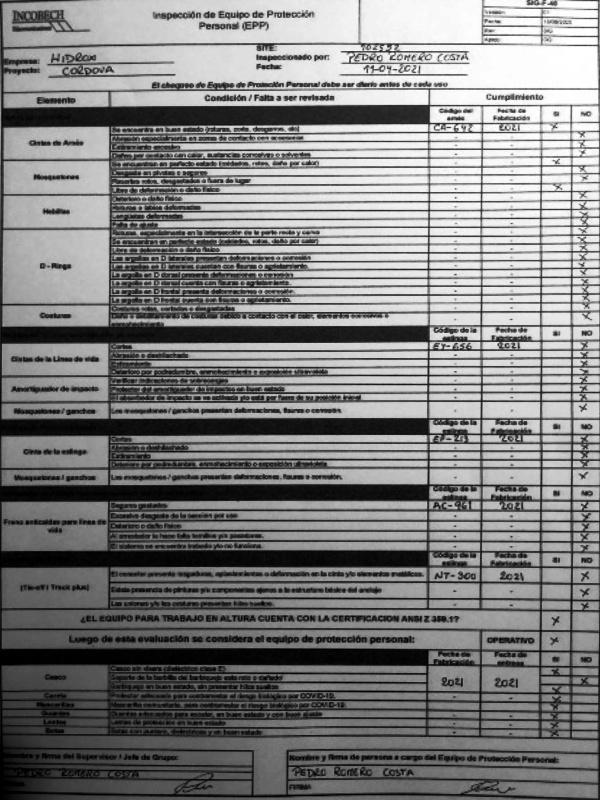 INCOBECH
Inspección de Equipo de Protección
Personal (EPP)
SIG-F-40
Empresa: HIDROX
Proyecto: CORDOVA
SITE: 702552
Inspeccionado por: PEDRO ROMERO COSTA
Fecha: 11-04-2021
El chequeo de Equipo de Protección Personal debe ser diario antes de cada uso
Elemento Condición / Falta a ser revisada Cumplimiento
Código del arnés Fecha de Fabricación SI NO
Cintas de Arnés
Se encuentra en buen estado (roturas, corte, desgarros, etc) CA-642 2021 X
Abrasión especialmente en zonas de contacto con accesorios - - X
Estiramiento excesivo - - X
Daños por contacto con calor, sustancias corrosivas o solventes - - X
Mosquetones
Se encuentran en perfecto estado (oxidados, rotos, daño por calor) - - X
Desgaste en pivotes o seguros - - X
Resortes rotos, desgastados o fuera de lugar - - X
Hebillas
Libre de deformación o daño físico - - X
Deterioro o daño físico - - X
Roturas o lados deformados - - X
Lengüetas deformadas - - X
Falta de ajuste - - X
D - Rings
Roturas, especialmente en la intersección de la parte recta y curva - - X
Se encuentran en perfecto estado (oxidados, rotos, daño por calor) - - X
Libre de deformación o daño físico - - X
Las argollas en D laterales presentan deformaciones o corrosión - - X
Las argollas en D laterales cuentan con fisuras o agrietamiento. - - X
La argolla en D dorsal presenta deformaciones o corrosión - - X
La argolla en D dorsal cuenta con fisuras o agrietamiento. - - X
La argolla en D frontal presenta deformaciones o corrosión. - - X
La argolla en D frontal cuenta con fisuras o agrietamiento. - - X
Costuras
Costuras rotas, cortadas o desgastadas - - X
Daño o debilitamiento de costuras debido a contacto con el calor, elementos corrosivos o enmohecimiento - - X
Código de la eslinga Fecha de Fabricación SI NO
Cintas de la Línea de vida
Cortes EY-656 2021 X
Abrasión o deshilachado - - X
Estiramiento - - X
Deterioro por podredumbre, enmohecimiento o exposición ultravioleta - - X
Amortiguador de impacto
Verificar indicaciones de sobrecargas - - X
Protector del amortiguador de impactos en buen estado - - X
El absorbedor de impacto se ve activado y/o está por fuera de su posición inicial. - - X
Mosquetones / ganchos
Los mosquetones / ganchos presentan deformaciones, fisuras o corrosión. - - X
Código de la eslinga Fecha de Fabricación SI NO
Cinta de la eslinga
Cortes EF-213 2021 X
Abrasión o deshilachado - - X
Estiramiento - - X
Deterioro por podredumbre, enmohecimiento o exposición ultravioleta - - X
Mosquetones / ganchos
Los mosquetones / ganchos presentan deformaciones, fisuras o corrosión. - - X
Código de la eslinga Fecha de Fabricación SI NO
Freno anticaídas para línea de vida
Seguros gastados AC-961 2021 X
Excesivo desgaste de la sección por uso - - X
Deterioro o daño físico - - X
Al arrestador le hace falta tornillos y/o pasadores. - - X
El sistema se encuentra trabado y/o no funciona. - - X
Código de la eslinga Fecha de Fabricación SI NO
(Tie-off / Track plus)
El conector presenta rasgaduras, agrietamientos o deformación en la cinta y/o elementos metálicos. NT-300 2021 X
Existe presencia de pinturas y/o componentes ajenos a la estructura básica del anclaje - - X
Las uniones y/o las costuras presentan hilos sueltos. - - X
¿EL EQUIPO PARA TRABAJO EN ALTURA CUENTA CON LA CERTIFICACION ANSI Z 359.1? X
Luego de esta evaluación se considera el equipo de protección personal: OPERATIVO X
Fecha de Fabricación Fecha de entrega SI NO
Casco
Casco sin visera (dieléctrico clase E) 2021 2021 X
Soporte de la barbilla del barbiquejo esta roto o dañado X
Barbiquejo en buen estado, sin presentar hilos sueltos X
Careta Protector adecuado para contrarrestar el riesgo biológico por COVID-19. X
Mascarilla Mascarilla comunitaria, para contrarrestar el riesgo biológico por COVID-19. X
Guantes Guantes adecuados para escalar, en buen estado y con buen ajuste X
Lentes Lentes de protección en buen estado X
Botas Botas con puntera, dieléctricas y en buen estado X
Nombre y firma del Supervisor / Jefe de Grupo:
PEDRO ROMERO COSTA
Nombre y firma de persona a cargo del Equipo de Protección Personal:
PEDRO ROMERO COSTA
FIRMA